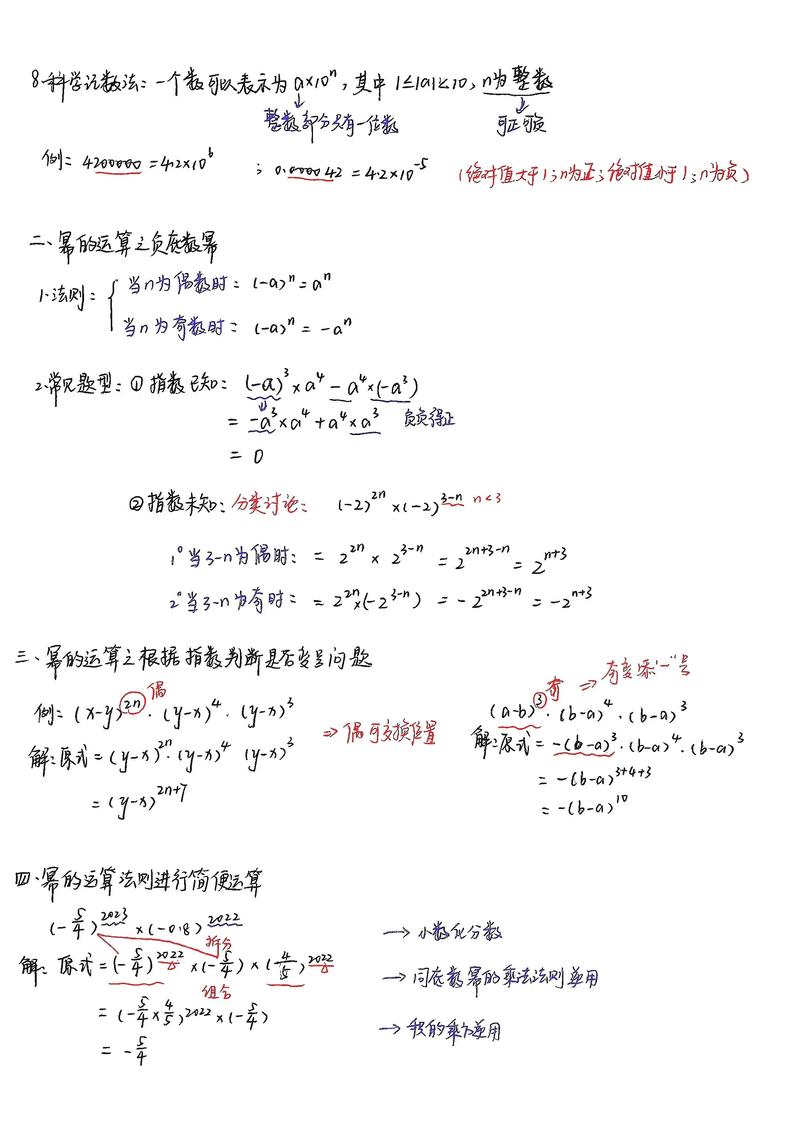 8.科学记数法：一个数可以表示为a×10ⁿ，其中1≤|a|<10，n为整数
整数部分只有一位数 可正可负
例：4200000=4.2×10⁶ ；0.000042=4.2×10⁻⁵ （绝对值大于1，n为正；绝对值小于1，n为负）
二、幂的运算之负底数幂
1.法则：{ 当n为偶数时：(-a)ⁿ=aⁿ
当n为奇数时：(-a)ⁿ=-aⁿ
2.常见题型：① 指数已知：(-a)³×a⁴-a⁴×(-a³)
=-a³×a⁴+a⁴×a³ 负负得正
=0
②指数未知：分类讨论：(-2)²ⁿ×(-2)³⁻ⁿ n<3
1°当3-n为偶时：=2²ⁿ×2³⁻ⁿ=2²ⁿ⁺³⁻ⁿ=2ⁿ⁺³
2°当3-n为奇时：=2²ⁿ×(-2³⁻ⁿ)=-2²ⁿ⁺³⁻ⁿ=-2ⁿ⁺³
三、幂的运算之根据指数判断是否变号问题
例：(x-y)²ⁿ·(y-x)⁴·(y-x)³ 偶
解：原式=(y-x)²ⁿ·(y-x)⁴ (y-x)³ ⇒偶可交换位置
=(y-x)²ⁿ⁺⁷
(a-b)³·(b-a)⁴·(b-a)³ 奇 ⇒奇变添"-"号
解：原式=-(b-a)³·(b-a)⁴·(b-a)³
=-(b-a)³⁺⁴⁺³
=-(b-a)¹⁰
四、幂的运算法则进行简便运算
(-5/4)²⁰²³×(-0.8)²⁰²² →小数化分数
拆分
解：原式=(-5/4)²⁰²²×(-5/4)×(-4/5)²⁰²² →同底数幂的乘法法则逆用
组合
=(-5/4×4/5)²⁰²²×(-5/4)
→积的乘方逆用
=-5/4